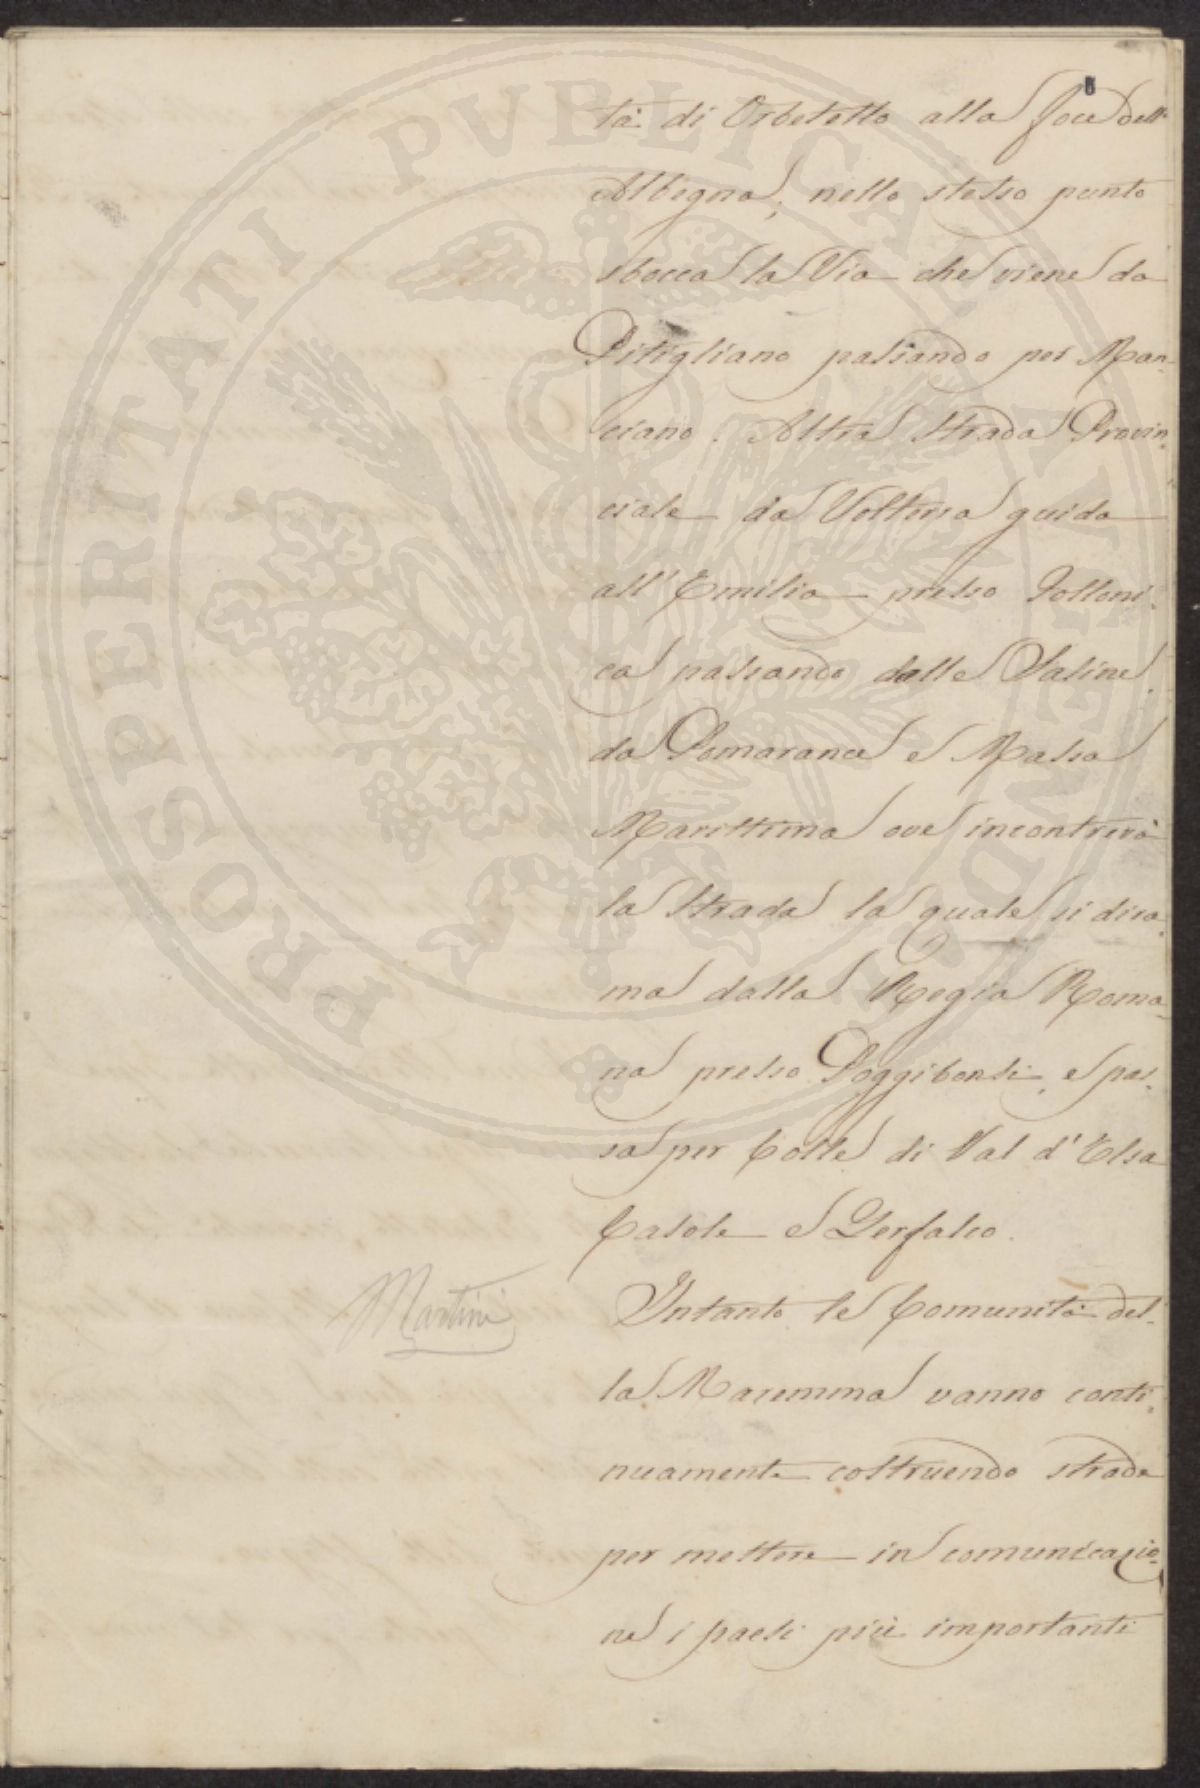 tà di Orbetello alla foce dell'
Albegna; nello stesso punto
sbocca la Via che viene da
Pitigliano passando per Man-
ciano. Altra Strada Provin-
ciale da Volterra guida
all'Emilia presso Folloni-
ca passando dalle Saline,
da Pomarance e Massa
Marittima ove incontrerà
la Strada la quale si dira-
ma dalla Regia Roma-
na presso Poggibonsi, e pas-
sa per Colle di Val d'Elsa
Casole e Gerfalco.
Martini
Intanto le Comunità del-
la Maremma vanno conti-
nuamente costruendo strade
per mettere in comunicazio-
ne i paesi più importanti
PROSPERITATI PVBLICAE AVGENDAE